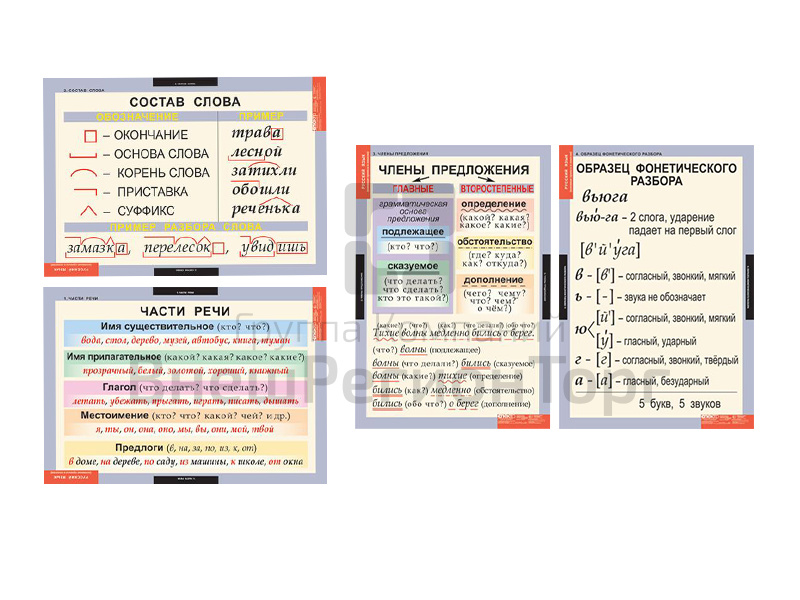 2. СОСТАВ СЛОВА
СОСТАВ СЛОВА
ОБОЗНАЧЕНИЕ ПРИМЕР
– ОКОНЧАНИЕ трава
– ОСНОВА СЛОВА лесной
– КОРЕНЬ СЛОВА затихли
– ПРИСТАВКА обошли
– СУФФИКС реченька
ПРИМЕР РАЗБОРА СЛОВА
замазка, перелесок, увидишь
РУССКИЙ ЯЗЫК
3. ЧАСТИ РЕЧИ
ЧАСТИ РЕЧИ
Имя существительное (кто? что?)
вода, стол, дерево, музей, автобус, книга, туман
Имя прилагательное (какой? какая? какое? какие?)
прозрачный, белый, золотой, хороший, книжный
Глагол (что делать? что сделать?)
лепать, убежать, прыгать, играть, писать, дышать
Местоимение (кто? что? какой? чей? и др.)
я, ты, он, она, оно, мы, вы, они, мой, твой
Предлоги (в, на, за, по, из, к, от)
в доме, на дереве, по саду, из машины, к школе, от окна
РУССКИЙ ЯЗЫК
РУССКИЙ ЯЗЫК
3. ЧЛЕНЫ ПРЕДЛОЖЕНИЯ
ЧЛЕНЫ ПРЕДЛОЖЕНИЯ
ГЛАВНЫЕ ВТОРОСТЕПЕННЫЕ
грамматическая
основа
предложения
подлежащее
(кто? что?)
сказуемое
(что делать?
что сделать?
кто это такой?)
определение
(какой? какая?
какое? какие?)
обстоятельство
(где? куда?
как? откуда?)
дополнение
(чего? чему?
что? чем?
о чём?)
(какие?) (что?) (как?) (что делали?) (обо что?)
Тихие волны медленно бились о берег.
(что?) волны (подлежащее)
волны (что делали?) бились (сказуемое)
волны (какие?) тихие (определение)
бились (как?) медленно (обстоятельство)
бились (обо что?) о берег (дополнение)
РУССКИЙ ЯЗЫК
4. ОБРАЗЕЦ ФОНЕТИЧЕСКОГО РАЗБОРА
ОБРАЗЕЦ ФОНЕТИЧЕСКОГО
РАЗБОРА
вьюга
вью́-га – 2 слога, ударение
падает на первый слог
[в'й'у́га]
в - [в'] – согласный, звонкий, мягкий
ь - [-] – звука не обозначает
ю [й'] – согласный, звонкий, мягкий
[у́] – гласный, ударный
г - [г] – согласный, звонкий, твёрдый
а - [а] – гласный, безударный
5 букв, 5 звуков
Группа Компаний
ВнешРегионТорг